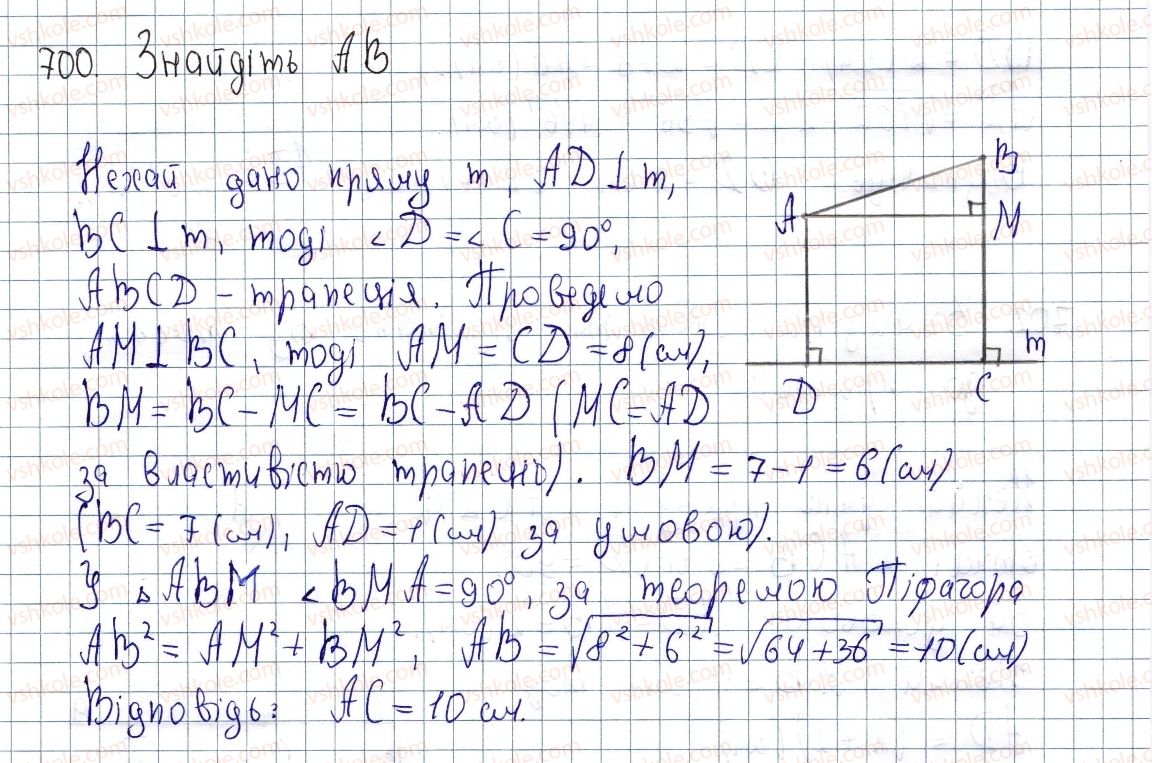 700. Знайдіть AB
Нехай дано пряму m, AD⊥m,
BC⊥m, тоді <D=<C=90°,
ABCD – трапеція. Проведемо
AM⊥BC, тоді AM=CD=8(см),
BM=BC-MC=BC-AD (MC=AD
за властивістю трапеції). BM=7-1=6(см)
(BC=7(см), AD=1(см) за умовою).
У ▵ABM <BMA=90°, за теоремою Піфагора
AB²=AM²+BM², AB=√8²+6²=√64+36=10(см)
Відповідь: AC=10 см.
B
A
M
m
D
C
vshkole.com